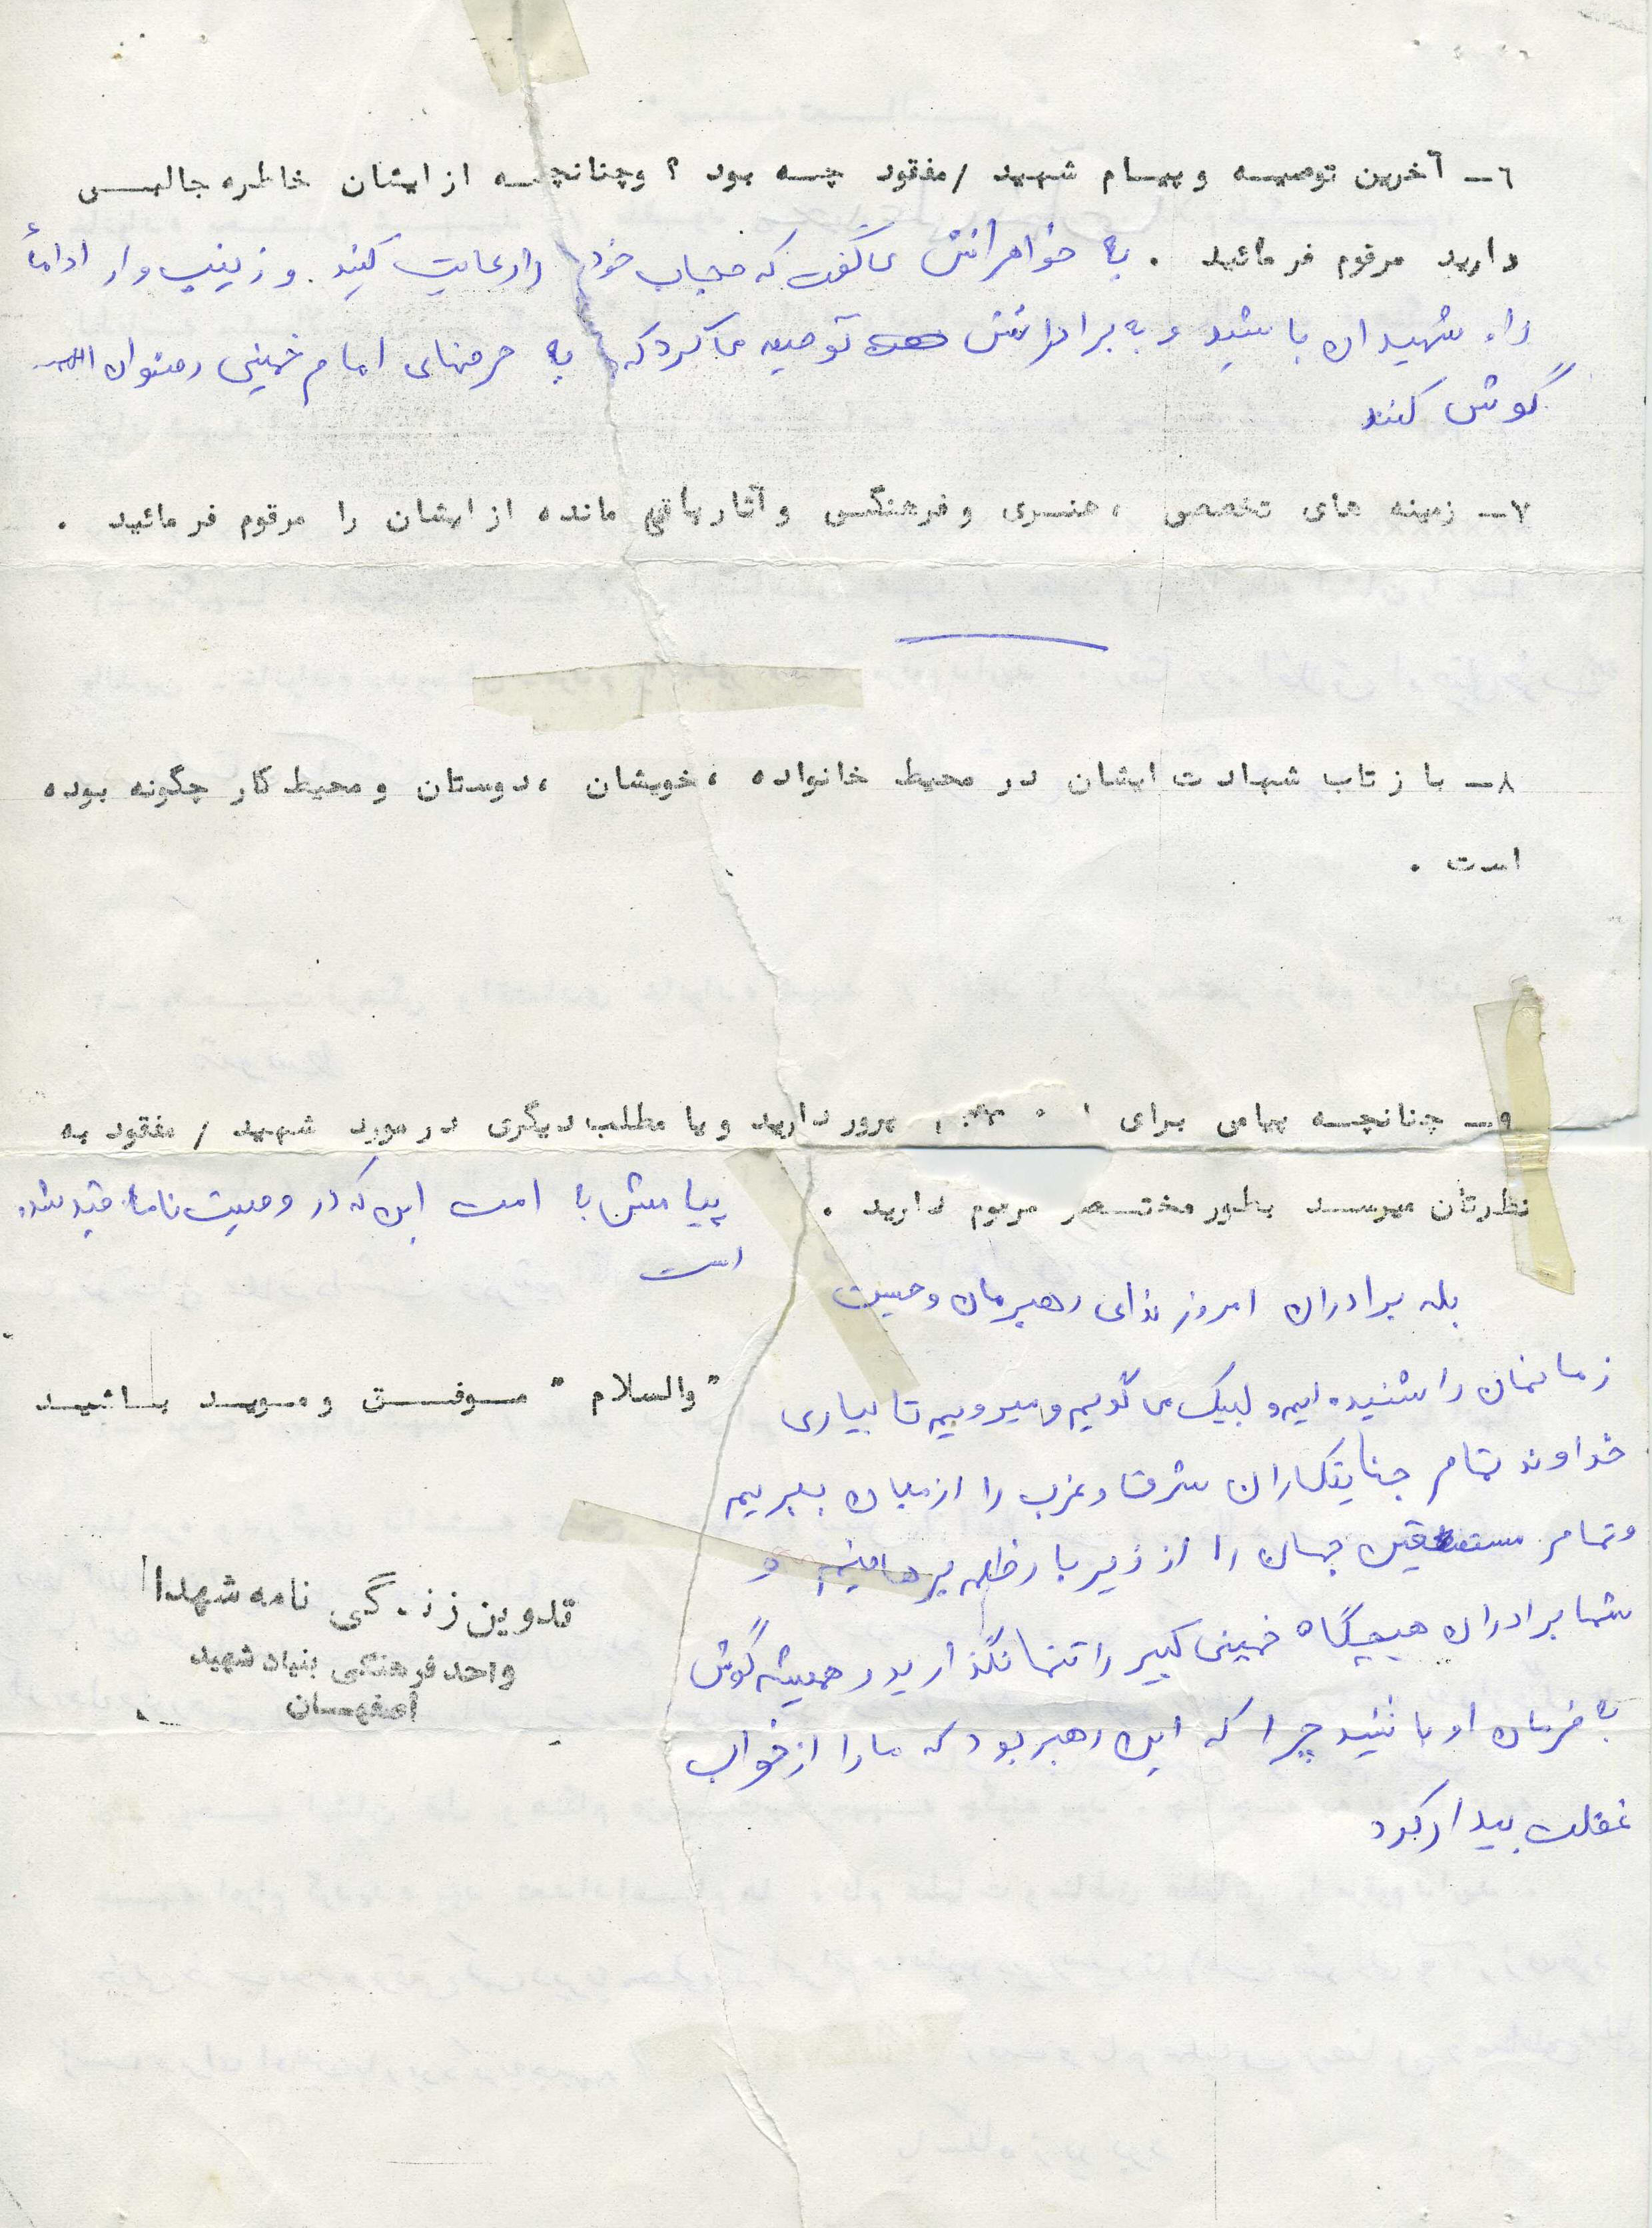 ٦ــ آخرین توصیــه و پیــام شهید /مفقود چــه بود ؟ وچنانچــه از ایشان خاطره جالبــی
دارید مرقوم فرمائید . به خواهرانش می گفت که حجاب خود را رعایت کنید. و زینب وار ادامهٔ
راه شهیدان باشید و به برادرانش توصیه می کرد که به حرفهای امام خمینی رضوان الله
گوش کنند
۷ــ زمینه های تخصصی ، هنــری و فرهنگــی و آثار باقی مانده از ایشان را مرقوم فرمائید .
۸ــ بازتاب شهادت ایشان در محیط خانواده ،خویشان ،دوستان و محیط کار چگونه بوده
است .
۹ــ چنانچــه پیامی برای پرور دارید و یا مطلب دیگری در مورد شهید / مفقود به
نظرتان میرســد بطور مختــصر مرقوم دارید . پیامش با امت این که در وصیت نامه قید شده
است
بله برادران امروز ندای رهبرمان و حسین
زمانمان را شنیده ایم و لبیک می گویم و میرویم تا بیاری
" والسلام " مــوفــق و مــویــد بــاشیــد
خداوند تمام جنایتکاران شرق و غرب را از میان ببریم
و تمام مستضعفین جهان را از زیر بار ظلم برهانیم و
شما برادران هیچگاه خمینی کبیر را تنها نگذارید و همیشه گوش
به فرمان او باشید چرا که این رهبر بود که ما را از خواب
غفلت بیدار کرد
تدوین زندگی نامه شهدا
واحد فرهنگی بنیاد شهید
اصفهــان